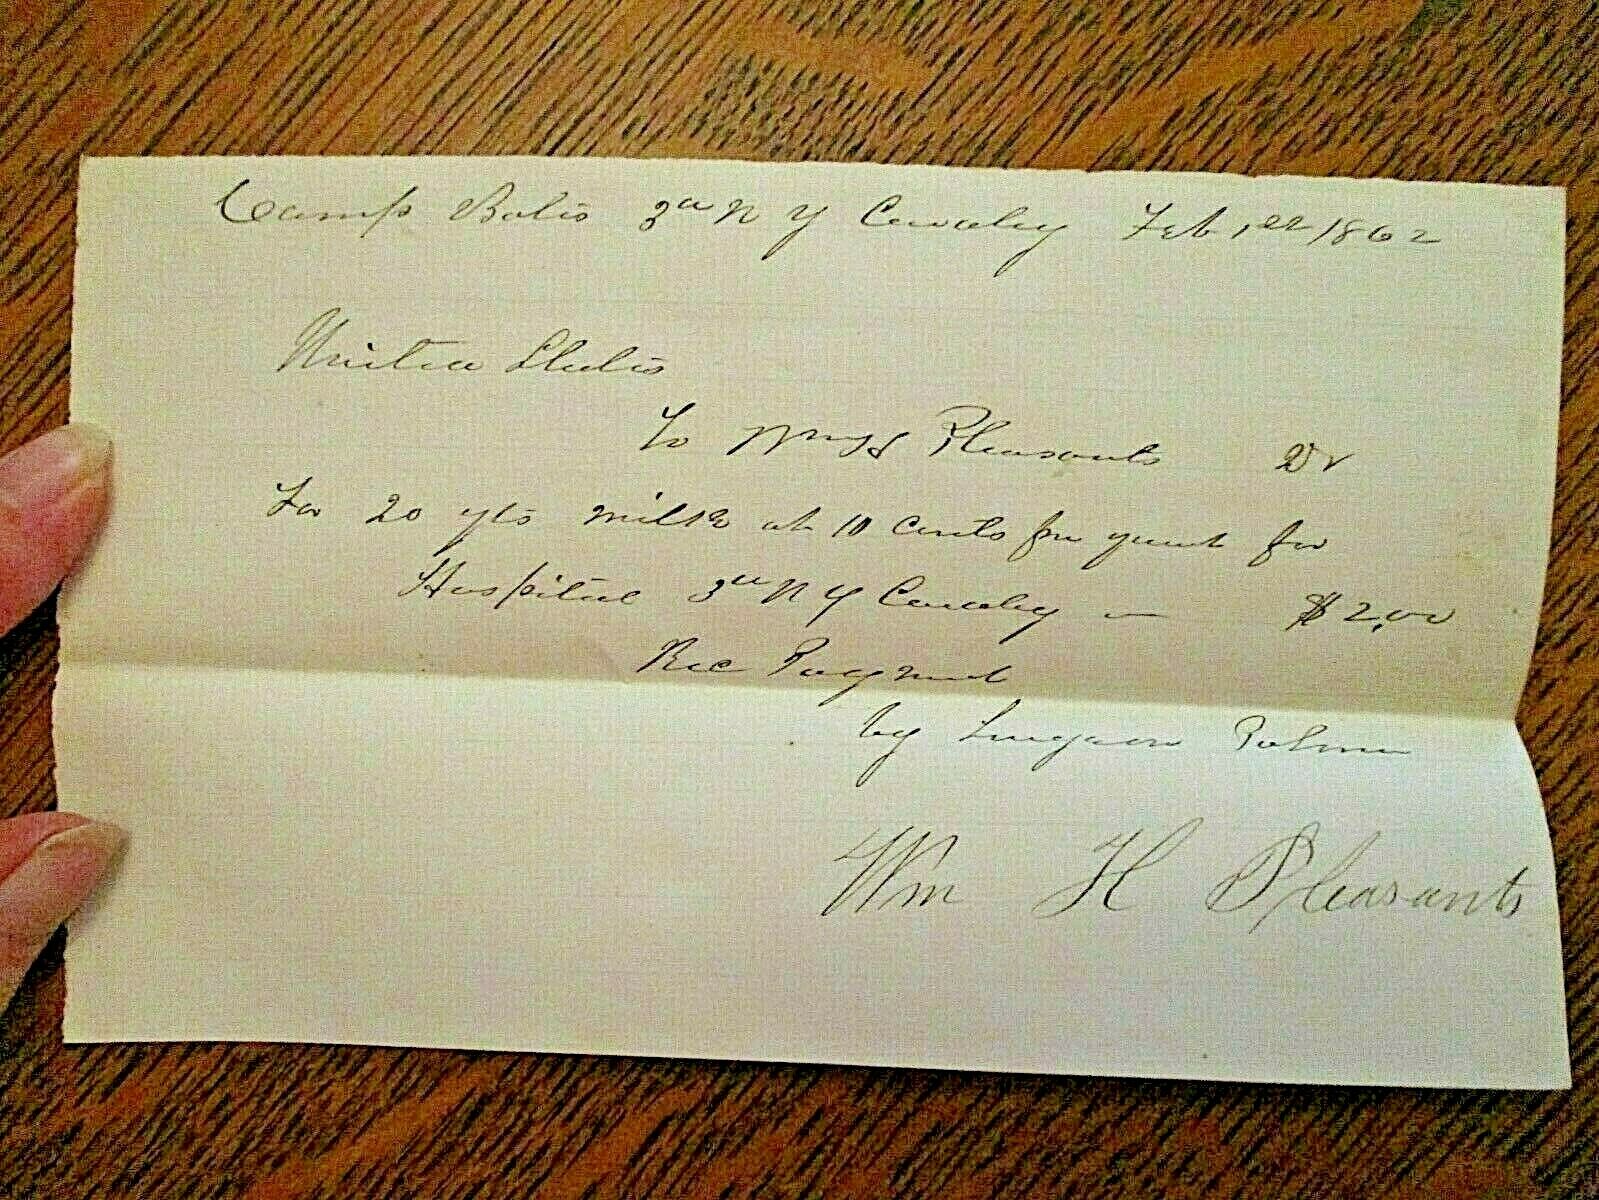 Camp Bates 3d N Y Cavalry Feb 1st 1862
United States
To Wm H Pleasants Dr
For 20 qts milk at 10 cents per quart for
Hospital 3d N Y Cavalry — $2.00
Rec Payment
by Surgeon Palmer
Wm H Pleasants